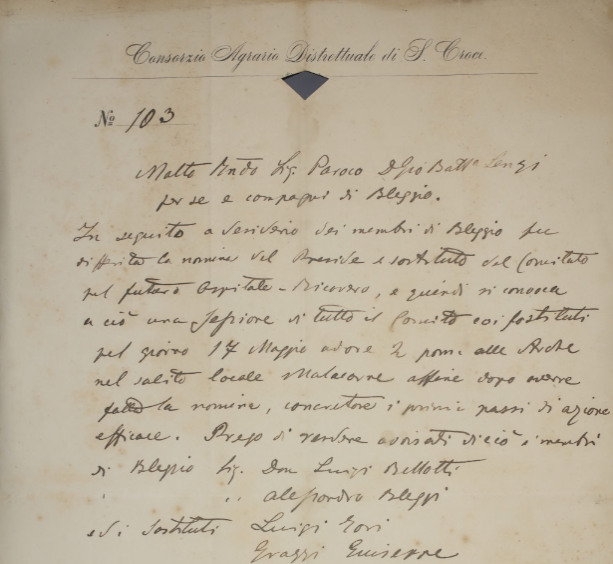 Consorzio Agrario Distrettuale di S. Croce.
No 103
Molto Rndo Sig. Paroco D Gio Batta Lenzi
per se e compagni di Bleggio.
In seguito a desiderio dei membri di Bleggio fu
differita la nomina del Preside e sostituto del Comitato
pel futuro Ospitale-Ricovero, e quindi si convoca
a ciò una Sessione di tutto il Comitato coi sostituti
pel giorno 17 Maggio ad ore 2 pom. alle Arche
nel solito locale Malacarne affine dopo avere
fatto la nomina, concretare i primi passi di azione
efficace. Prego di rendere avvisati di ciò i membri
di Bleggio Sig. Don Luigi Bellotti
" " Alessandro Bleggi
ed i sostituti Luigi
Giuseppe